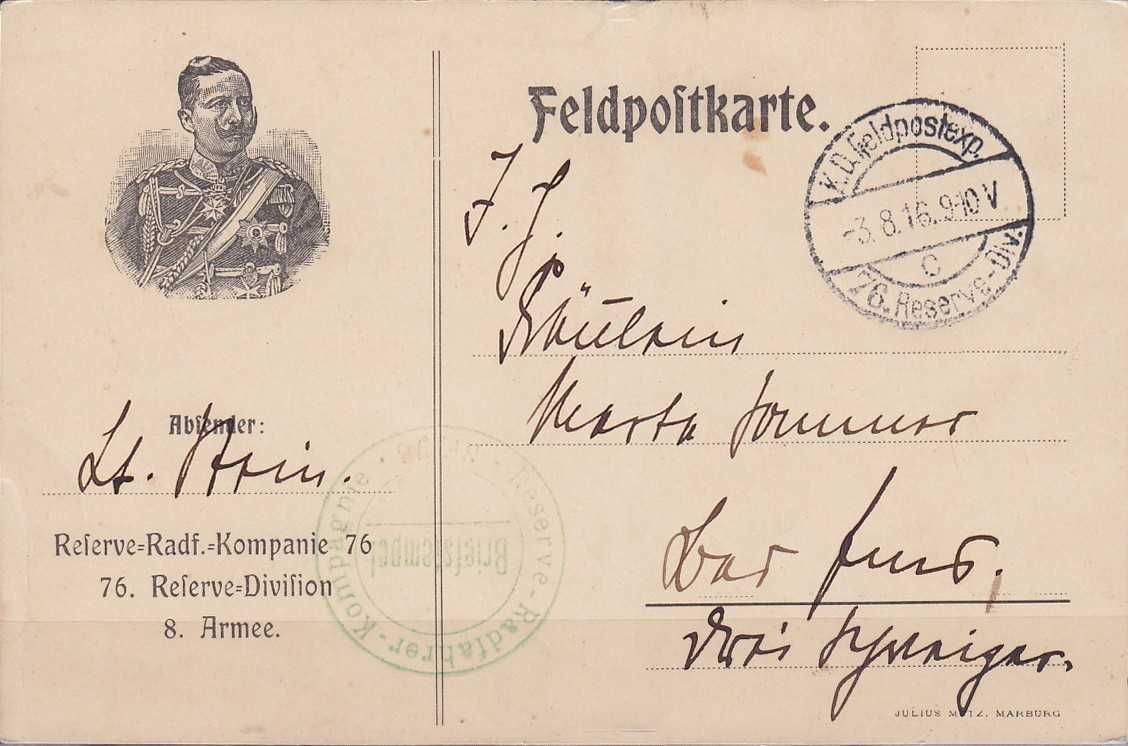 Feldpoſtkarte.
K.D. Feldpostexp.
-3.8.16. 9-10 V
c
76. Reserve-Div.
Fräulein
Marta Sommer
Bad Ems.
Drei Schweizer.
Abſender:
Lt. Stein.
Reſerve-Radf.-Kompanie 76
76. Reſerve-Diviſion
8. Armee.
Reserve-Radfahrer-Kompagnie
Briefstempel
JULIUS METZ, MARBURG